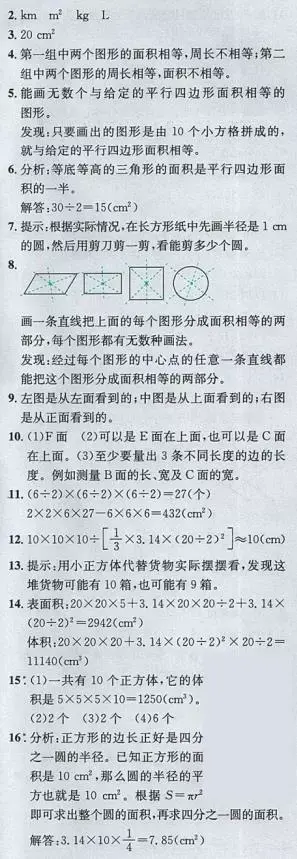 2. km m² kg L
3. 20 cm²
4. 第一组中两个图形的面积相等,周长不相等;第二
组中两个图形的周长相等,面积不相等。
5. 能画无数个与给定的平行四边形面积相等的
图形。
发现:只要画出的图形是由 10 个小方格拼成的,
就与给定的平行四边形面积相等。
6. 分析:等底等高的三角形的面积是平行四边形面
积的一半。
解答:30÷2=15(cm²)
7. 提示:根据实际情况,在长方形纸中先画半径是 1 cm
的圆,然后用剪刀剪一剪,看能剪多少个圆。
8.
画一条直线把上面的每个图形分成面积相等的两
部分,每个图形都有无数种画法。
发现:经过每个图形的中心点的任意一条直线都
能把这个图形分成面积相等的两部分。
9. 左图是从左面看到的;中图是从上面看到的;右图
是从正面看到的。
10. (1)F面 (2)可以是 E 面在上面,也可以是 C 面
在上面。(3)至少要量出 3 条不同长度的边的长
度。例如测量 B 面的长、宽及 C 面的宽。
11. (6÷2)×(6÷2)×(6÷2)=27(个)
2×2×6×27-6×6×6=432(cm²)
12. 10×10×10÷[1/3×3.14×(20÷2)²]≈10(cm)
13. 提示:用小正方体代替货物实际摆摆看,发现这
堆货物可能有 10 箱,也可能有 9 箱。
14. 表面积:20×20×5+3.14×20×20÷2+3.14×
(20÷2)²=2942(cm²)
体积:20×20×20+3.14×(20÷2)²×20÷2=
11140(cm³)
15*. (1)一共有 10 个正方体,它的体
积是 5×5×5×10=1250(cm³)。
(2)2 个 (3)2 个 (4)6 个
16*. 分析:正方形的边长正好是四分
之一圆的半径。已知正方形的面
积是 10 cm²,那么圆的半径的平
方也就是 10 cm²。根据 S=πr²
即可求出整个圆的面积,再求四分之一圆的面积。
解答:3.14×10×1/4=7.85(cm²)